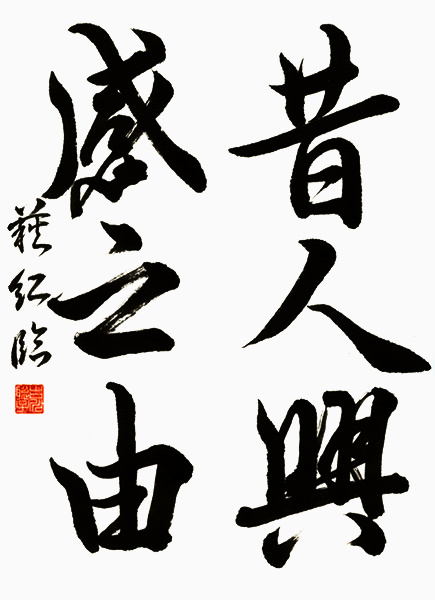 昔人興
感之由
蘇紅臨